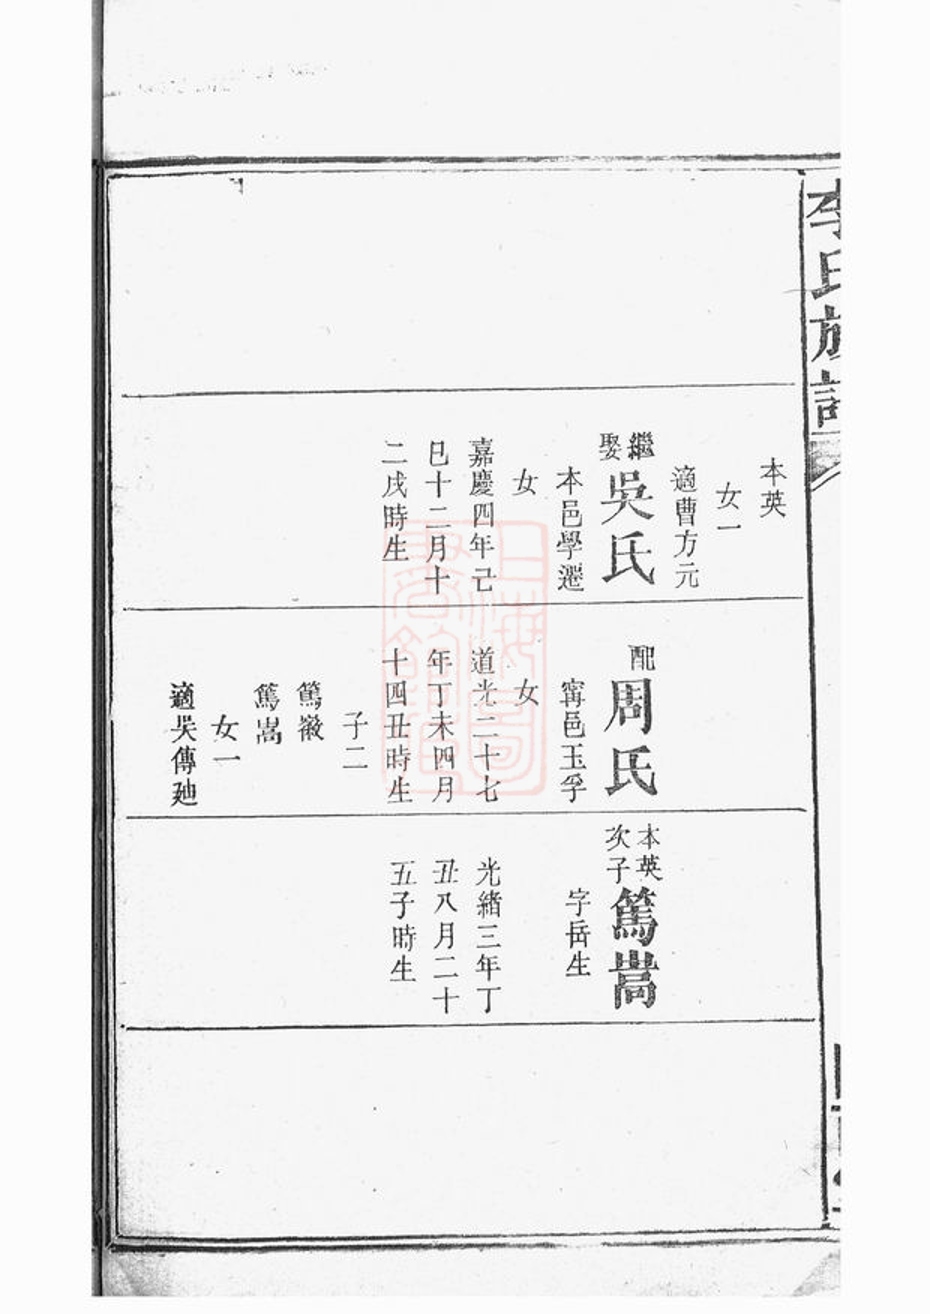 李氏族譜
本英
女一
適曹方元
繼娶吳氏
本邑學選
女
嘉慶四年己
巳十二月十
二戌時生
配周氏
甯邑玉孚
女
道光二十七
年丁未四月
十四丑時生
子二
篤徽
篤嵩
女一
適吳傳廸
本英次子篤嵩
字岳生
光緒三年丁
丑八月二十
五子時生
上海圖書館藏